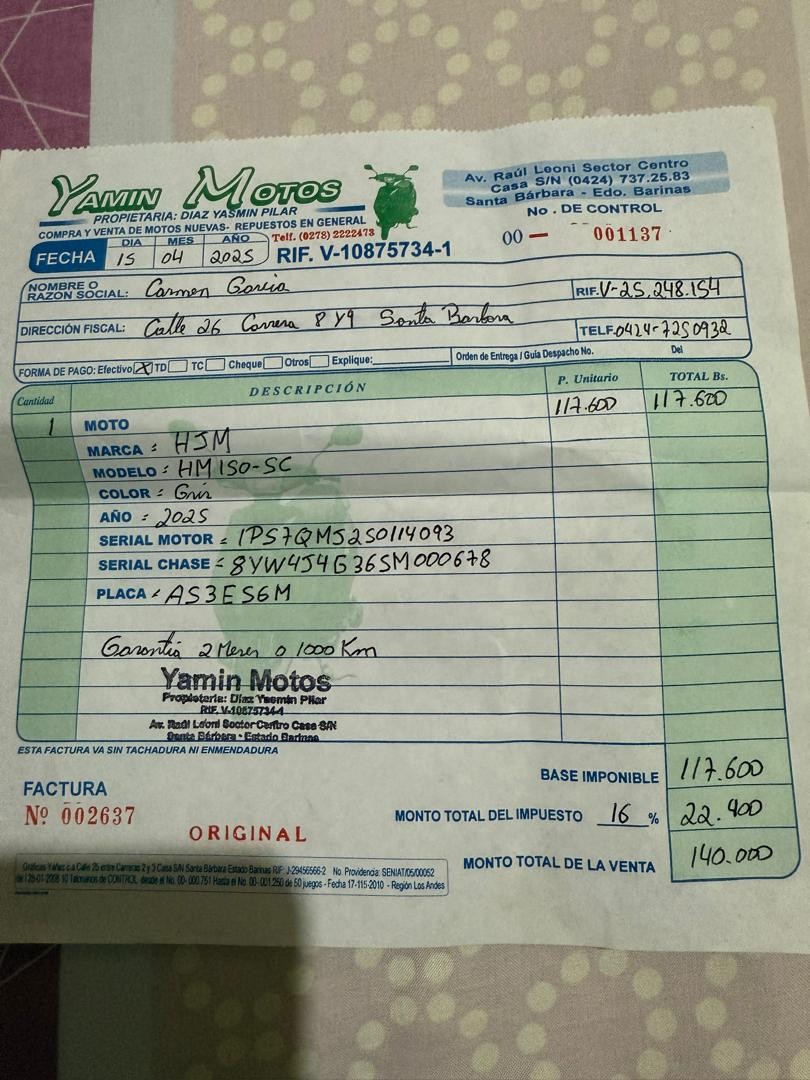 YAMIN MOTOS
PROPIETARIA: DIAZ YASMIN PILAR
COMPRA Y VENTA DE MOTOS NUEVAS- REPUESTOS EN GENERAL
Telf. (0278) 2222473
Av. Raúl Leoni Sector Centro
Casa S/N (0424) 737.25.83
Santa Bárbara - Edo. Barinas
No. DE CONTROL
00 — 001137
FECHA DIA 15 MES 04 AÑO 2025
RIF. V-10875734-1
NOMBRE O RAZON SOCIAL: Carmen Garcia RIF. V-25.248.154
DIRECCIÓN FISCAL: Calle 26 Carrera 8 y 9 Santa Barbara TELF. 0424-7250932
FORMA DE PAGO: Efectivo X TD TC Cheque Otros Explique: Orden de Entrega / Guía Despacho No. Del
Cantidad DESCRIPCIÓN P. Unitario TOTAL Bs.
1 MOTO 117.600 117.600
MARCA : HJM
MODELO : HM150-SC
COLOR : Gris
AÑO : 2025
SERIAL MOTOR : 1P57QMJ250114093
SERIAL CHASE : 8YW4J4G36SM000678
PLACA : AS3ES6M
Garantia 2 Meses o 1000 Km
Yamin Motos
Propietaria: Díaz Yasmin Pilar
RIF. V-10875734-1
Av. Raúl Leoni Sector Centro Casa S/N
Santa Bárbara - Estado Barinas
ESTA FACTURA VA SIN TACHADURA NI ENMENDADURA
BASE IMPONIBLE 117.600
FACTURA
Nº 002637
MONTO TOTAL DEL IMPUESTO 16 % 22.400
ORIGINAL
MONTO TOTAL DE LA VENTA 140.000
Gráficas Yáñez c.a Calle 25 entre Carreras 2 y 3 Casa S/N Santa Bárbara Estado Barinas RIF: J-29456566-2 No. Providencia: SENIAT/05/00052
de 28-01-2008 10 Talonarios de CONTROL desde el No. 00-000.751 Hasta el No. 00-001.250 de 50 juegos - Fecha 17-115-2010 - Región Los Andes